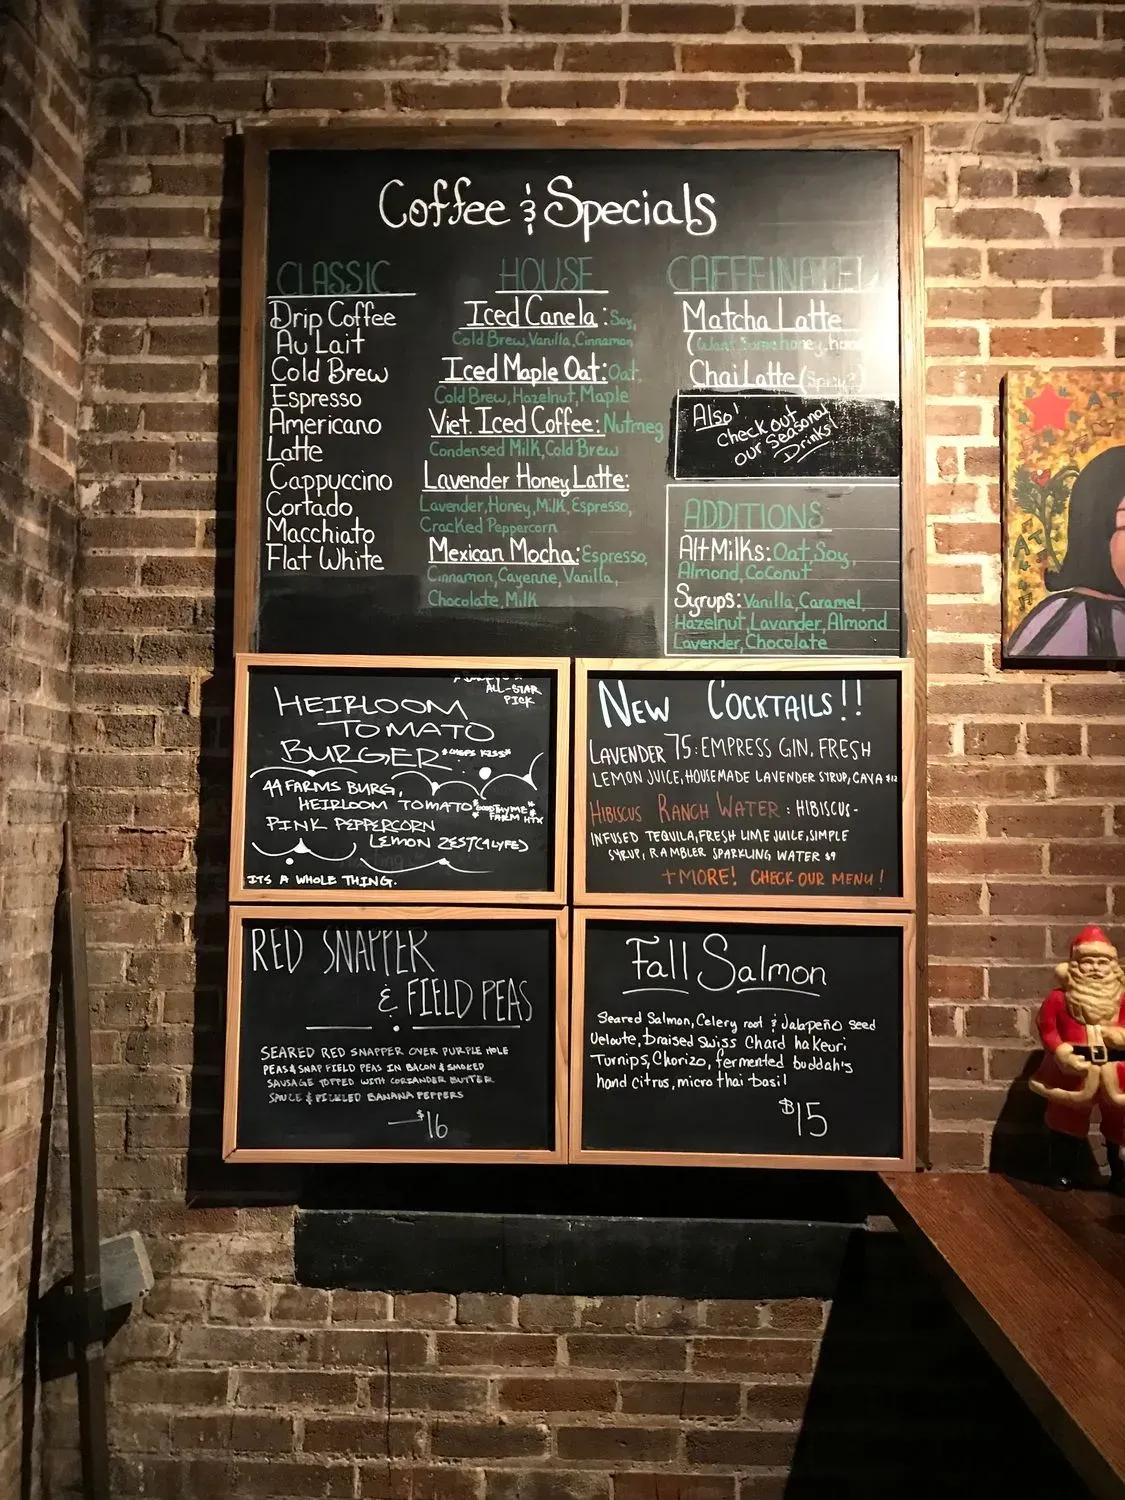 Coffee & Specials
CLASSIC
Drip Coffee
Au Lait
Cold Brew
Espresso
Americano
Latte
Cappuccino
Cortado
Macchiato
Flat White
HOUSE
Iced Canela: Soy,
Cold Brew, Vanilla, Cinnamon
Iced Maple Oat: Oat,
Cold Brew, Hazelnut, Maple
Viet. Iced Coffee: Nutmeg
Condensed Milk, Cold Brew
Lavender Honey Latte:
Lavender, Honey, Milk, Espresso,
Cracked Peppercorn
Mexican Mocha: Espresso,
Cinnamon, Cayenne, Vanilla,
Chocolate, Milk
CAFFEINATED
Matcha Latte
(Want some honey, hon
Chai Latte (Spicy?)
Also!
Check out
our Seasonal
Drinks!
ADDITIONS
Alt Milks: Oat, Soy,
Almond, Coconut
Syrups: Vanilla, Caramel,
Hazelnut, Lavander, Almond
Lavender, Chocolate
ALL-STAR
PICK
HEIRLOOM
TOMATO
BURGER *CHEFS KISS*
44 FARMS BURG,
HEIRLOOM TOMATO *GOOD THYME FARM HTX*
PINK PEPPERCORN
LEMON ZEST (4LYFE)
ITS A WHOLE THING.
NEW COCKTAILS!!
LAVENDER 75: EMPRESS GIN, FRESH
LEMON JUICE, HOUSEMADE LAVENDER SYRUP, CAVA $12
HIBISCUS RANCH WATER: HIBISCUS-
INFUSED TEQUILA, FRESH LIME JUICE, SIMPLE
SYRUP, RAMBLER SPARKLING WATER $9
+MORE! CHECK OUR MENU!
RED SNAPPER
& FIELD PEAS
SEARED RED SNAPPER OVER PURPLE HOLE
PEAS & SNAP FIELD PEAS IN BACON & SMOKED
SAUSAGE TOPPED WITH CORIANDER BUTTER
SAUCE & PICKLED BANANA PEPPERS
$16
Fall Salmon
Seared Salmon, Celery root & Jalapeño seed
Veloute, braised Swiss Chard hakeuri
Turnips, Chorizo, fermented buddah's
hand citrus, micro thai basil
$15